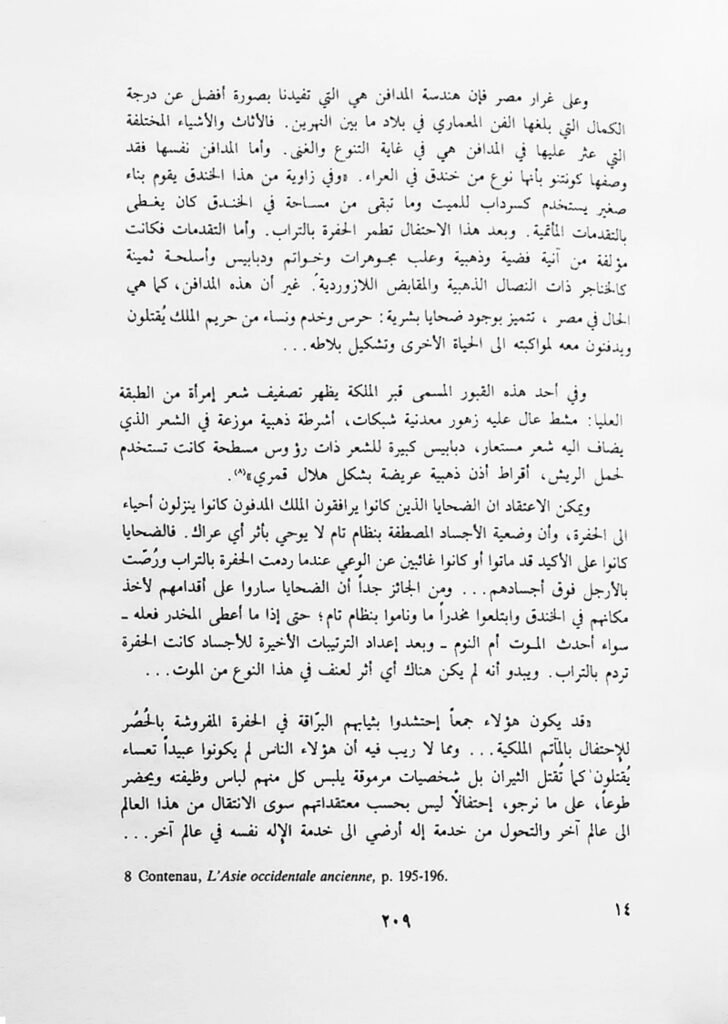 وعلى غرار مصر فإن هندسة المدافن هي التي تفيدنا بصورة أفضل عن درجة
الكمال التي بلغها الفن المعماري في بلاد ما بين النهرين. فالأثاث والأشياء المختلفة
التي عثر عليها في المدافن هي في غاية التنوع والغنى. وأما المدافن نفسها فقد
وصفها كونتنو بأنها نوع من خندق في العراء. «وفي زاوية من هذا الخندق يقوم بناء
صغير يستخدم كسرداب للميت وما تبقى من مساحة في الخندق كان يغطى
بالتقدمات المأتمية. وبعد هذا الاحتفال تطمر الحفرة بالتراب. وأما التقدمات فكانت
مؤلفة من آنية فضية وذهبية وعلب مجوهرات وخواتم ودبابيس وأسلحة ثمينة
كالخناجر ذات النصال الذهبية والمقابض اللازوردية. غير أن هذه المدافن، كما هي
الحال في مصر ، تتميز بوجود ضحايا بشرية: حرس وخدم ونساء من حريم الملك يُقتلون
ويدفنون معه لمواكبته الى الحياة الأخرى وتشكيل بلاطه...
وفي أحد هذه القبور المسمى قبر الملكة يظهر تصفيف شعر إمرأة من الطبقة
العليا: مشط عال عليه زهور معدنية شبكات، أشرطة ذهبية موزعة في الشعر الذي
يضاف اليه شعر مستعار، دبابيس كبيرة للشعر ذات رؤوس مسطحة كانت تستخدم
لحمل الريش، أقراط أذن ذهبية عريضة بشكل هلال قمري»(٨).
ويمكن الاعتقاد ان الضحايا الذين كانوا يرافقون الملك المدفون كانوا ينزلون أحياء
الى الحفرة، وأن وضعية الأجساد المصطفة بنظام تام لا يوحي بأثر أي عراك. فالضحايا
كانوا على الأكيد قد ماتوا أو كانوا غائبين عن الوعي عندما ردمت الحفرة بالتراب ورُصّت
بالأرجل فوق أجسادهم... ومن الجائز جداً أن الضحايا ساروا على أقدامهم لأخذ
مكانهم في الخندق وابتلعوا مخدراً ما وناموا بنظام تام؛ حتى إذا ما أعطى المخدر فعله ـ
سواء أحدث الموت أم النوم ـ وبعد إعداد الترتيبات الأخيرة للأجساد كانت الحفرة
تردم بالتراب. ويبدو أنه لم يكن هناك أي أثر لعنف في هذا النوع من الموت...
«قد يكون هؤلاء جمعاً إحتشدوا بثيابهم البرّاقة في الحفرة المفروشة بالحُصُر
للإحتفال بالمآتم الملكية... ومما لا ريب فيه أن هؤلاء الناس لم يكونوا عبيداً تعساء
يُقتلون كما تُقتل الثيران بل شخصيات مرموقة يلبس كل منهم لباس وظيفته ويحضر
طوعاً، على ما نرجو، إحتفالًا ليس بحسب معتقداتهم سوى الانتقال من هذا العالم
الى عالم آخر والتحول من خدمة إله أرضي الى خدمة الإله نفسه في عالم آخر...
8 Contenau, L'Asie occidentale ancienne, p. 195-196.
١٤
٢٠٩